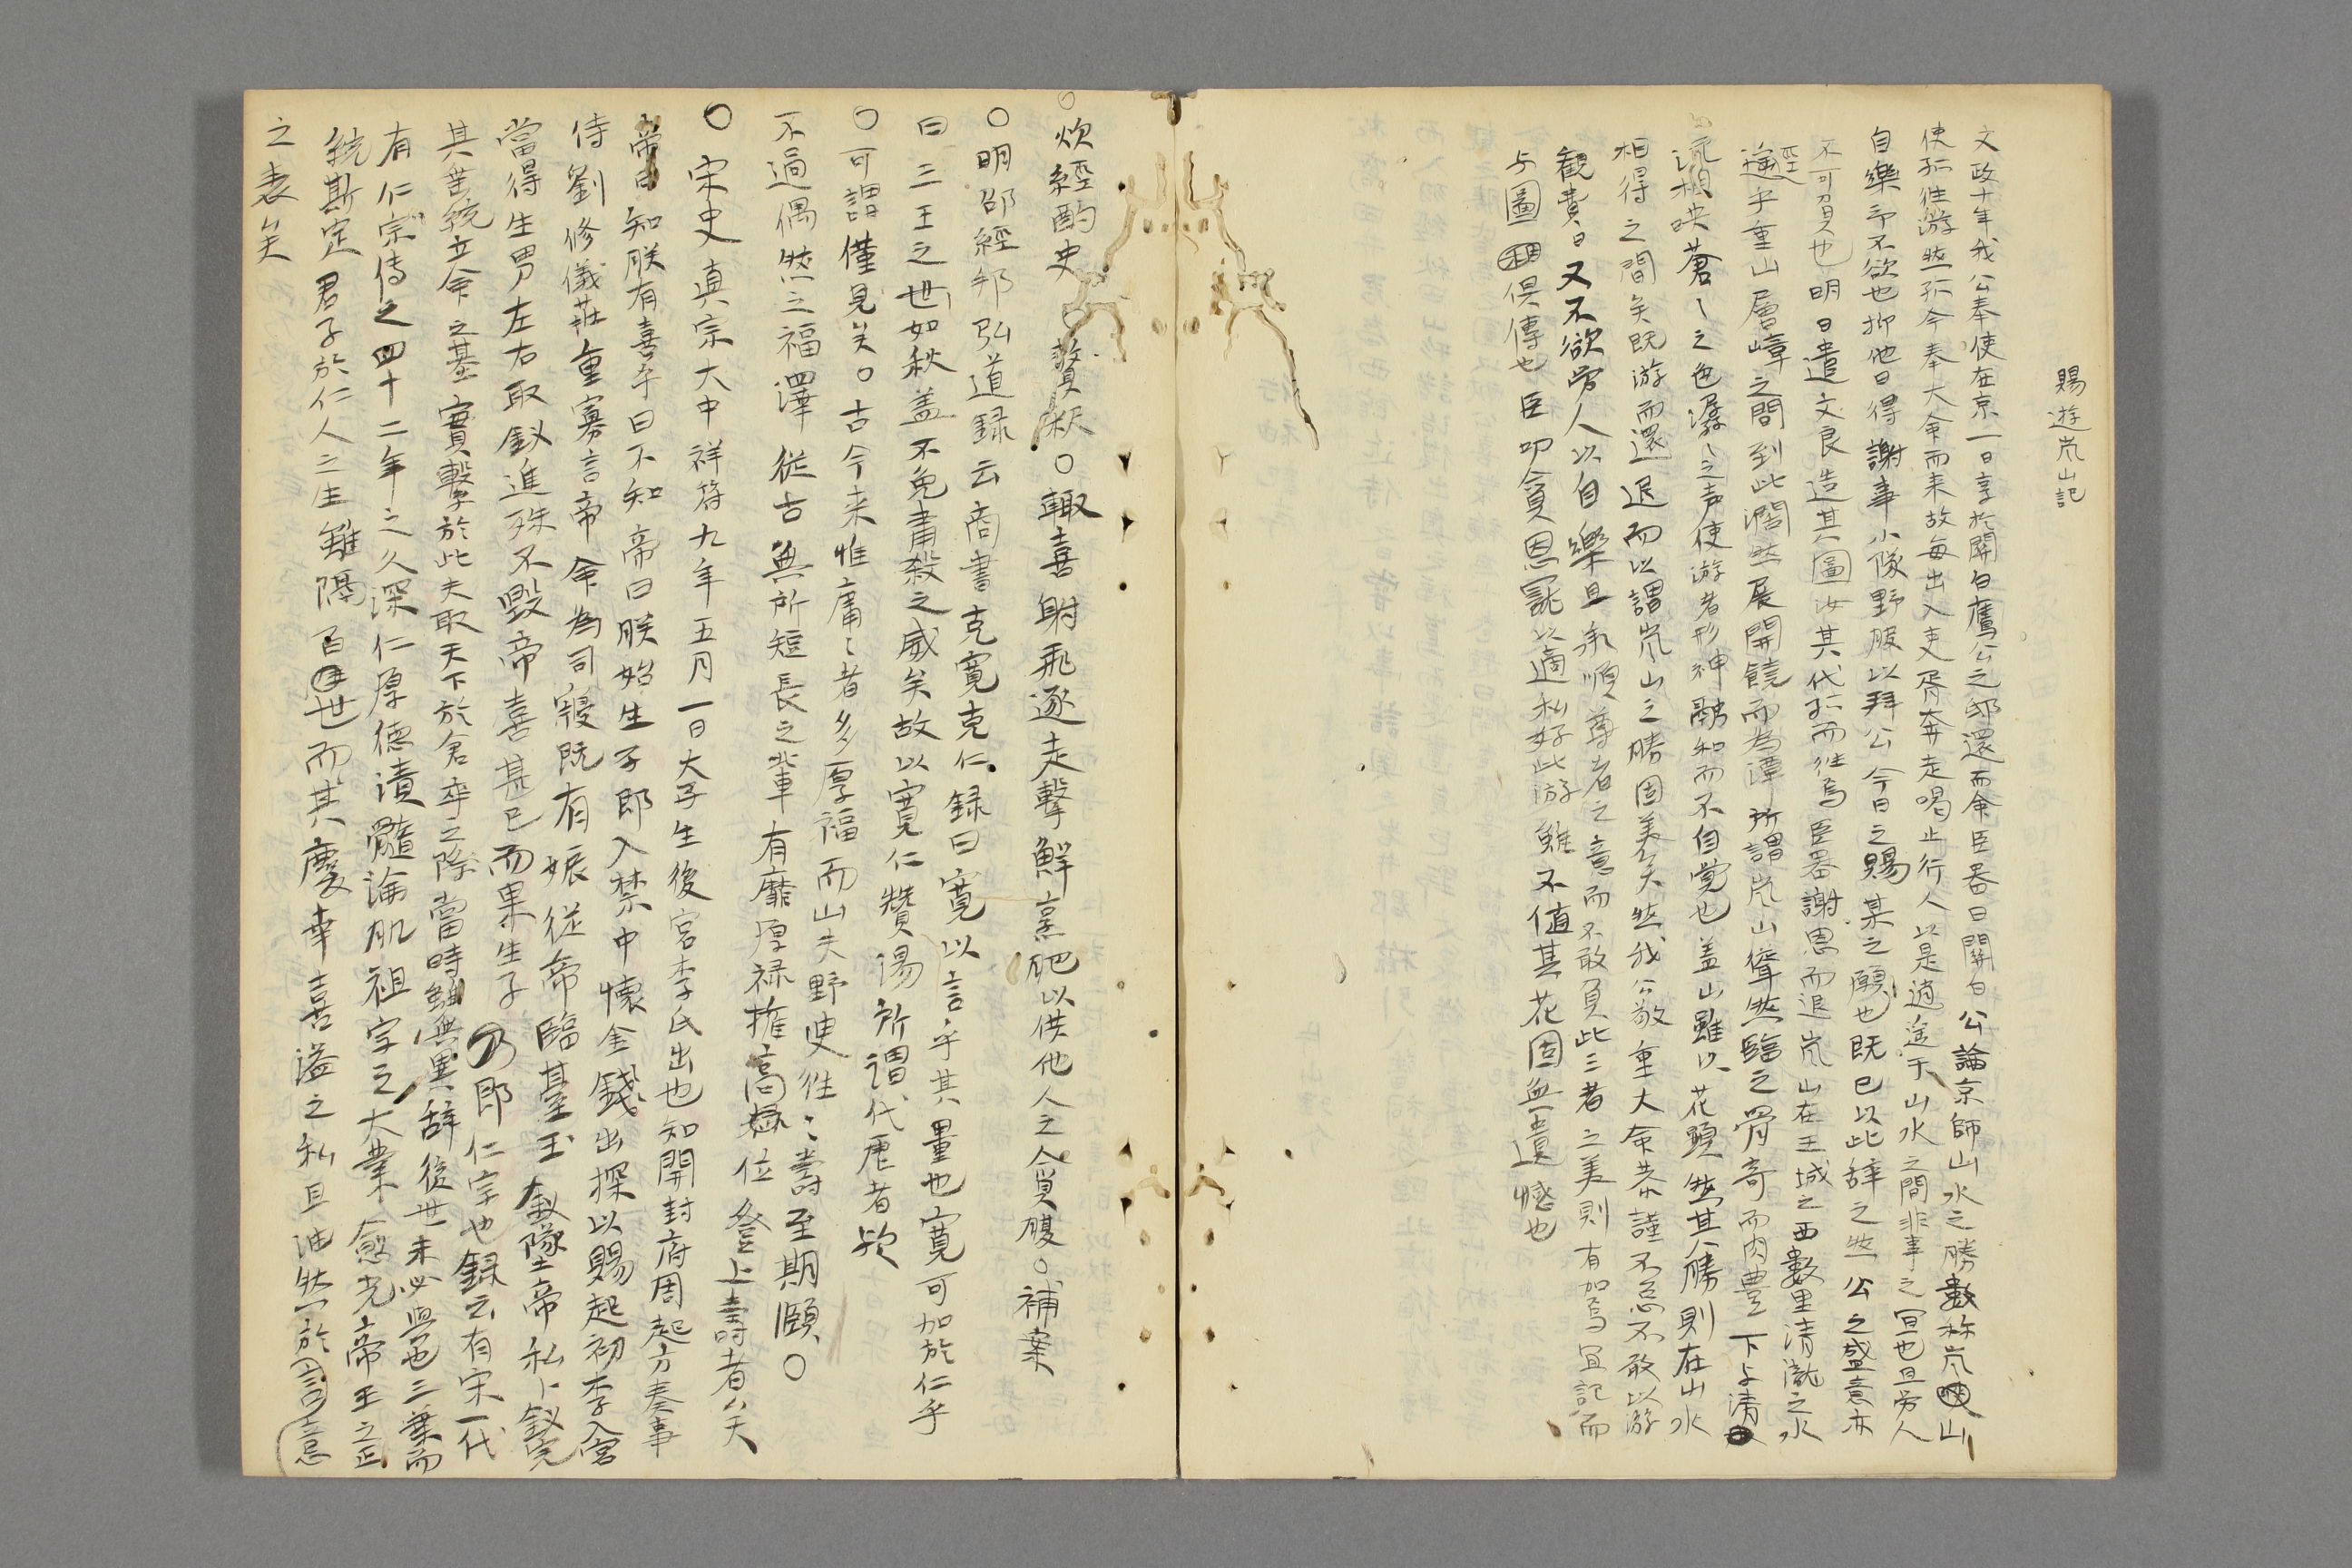 賜遊嵐山記
文政十年我公奉使在京一日享於關白鷹公之邸還而命臣晷曰關白公論京師山水之勝數称嵐山
使孤徃游然孤今奉大命而来故每出入吏胥奔走喝止行人以是逍遥于山水之間非事之宜也且勞人
自樂亦不欲也抑他日得謝事小隊野服以拜公今日之賜某之願也既已以此辞之然公之盛意亦
不可負也明日遣文良造其圖汝其代孤而徃焉臣晷謝恩而退嵐山在王城之西數里清瀧之水
逕乎重山層嶂之間到此濶然展開饒而為潭所謂嵐山聳然臨之骨奇而肉豊下与清
流相映蒼〻之色潺〻之声使游者形神融和而不自覚也盖山雖以花顕然其勝則在山水
相得之間矣既游而還退而以謂嵐山之勝固美矣然我公敬重大命恭謹不怠不敢以游
觀費日又不欲勞人以自樂且承順尊者之意而不敢負此三者之美則有加焉宜記而
与圖俱傳也臣叨貪恩寵以適私好此游雖不值其花固無遺憾也
○炊經酌史○警厭○諏喜射飛逐走擊鮮烹肥以供他人之貪腹○補案
○明邵經邦弘道録云商書克寛克仁録曰寛以言乎其量也寛可加於仁乎
曰三王之世如秋盖不免肅殺之威矣故以寛仁贊湯所謂代虐者欤
○可謂僅見矣○古今来惟庸〻者多厚福而山夫野叟徃〻壽至期頤○
不過偶然之福澤從古無所短長之輩有靡厚禄擁高位登上壽者矣
○宋史真宗大中祥符九年五月一日大子生後宮李氏出也知開封府周起方奏事
帝曰知朕有喜乎曰不知帝曰朕始生子即入禁中懷金錢出探以賜起初李入宮
侍劉修儀莊重寡言帝命為司寢既有娠從帝臨臺玉釵墜帝私卜釵完
當得生男左右取釵進殊不毀帝喜甚已而果生子即仁宗也録云有宋一代
其苦統立命之基實繫於此夫取天下於倉卒之際當時雖無異辞後世未必與也三葉而
有仁宗傳之四十二年之久深仁厚德漬髓淪肌祖宗之大業愈光帝王之正
統斯定君子於仁人之生雖隔百世而其慶幸喜溢之私且油然於言意
之表矣